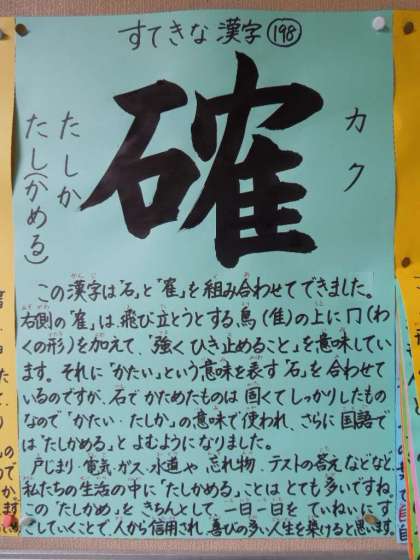 すてきな漢字 198
確
カク
たしか
たし(かめる)
この漢字は「石」と「隺」を組み合わせてできました。
右側の「隺」は、飛び立とうとする鳥(隹)の上に冂(わ
くの形)を加えて、「強くひき止めること」を意味してい
ます。それに「かたい」という意味を表す「石」を合わせて
いるのですが、石でかためたものは固くてしっかりしたもの
なので「かたい・たしか」の意味で使われ、さらに国語で
は「たしかめる」とよむようになりました。
戸じまり・電気・ガス・水道や忘れ物・テストの答えなどなど、
私たちの生活の中に「たしかめる」ことはとても多いですね。
この「たしかめ」をきちんとして、一日一日をていねいにす
ごしていくことで、人から信用され、喜びの多い人生を築けると思います。